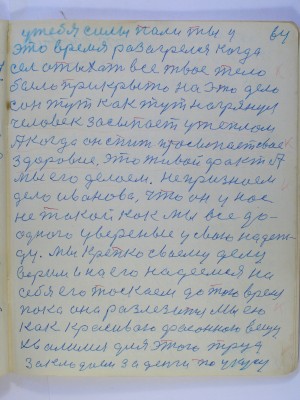 у тебя силы пали ты у
это время разагрелся когда
сел отыхать все твое тело
было прикрыто на это дело
сон тут как тут нагрянул
человек засыпает у теплом
А когда он спит просыпает свое
здоровие. это живой факт А
мы его делаем. непризнаем
дело иванова, что он у нас
не такой как мы все до-
одного увереные у свою надеж-
ду. мы крепко своему делу
верим и на его надеемся на
себя его тоскаем до того время
пока она разлезится мы ею
как красивою фасонною вещу
хвалимся для этого труд
закладаем за денги по куску